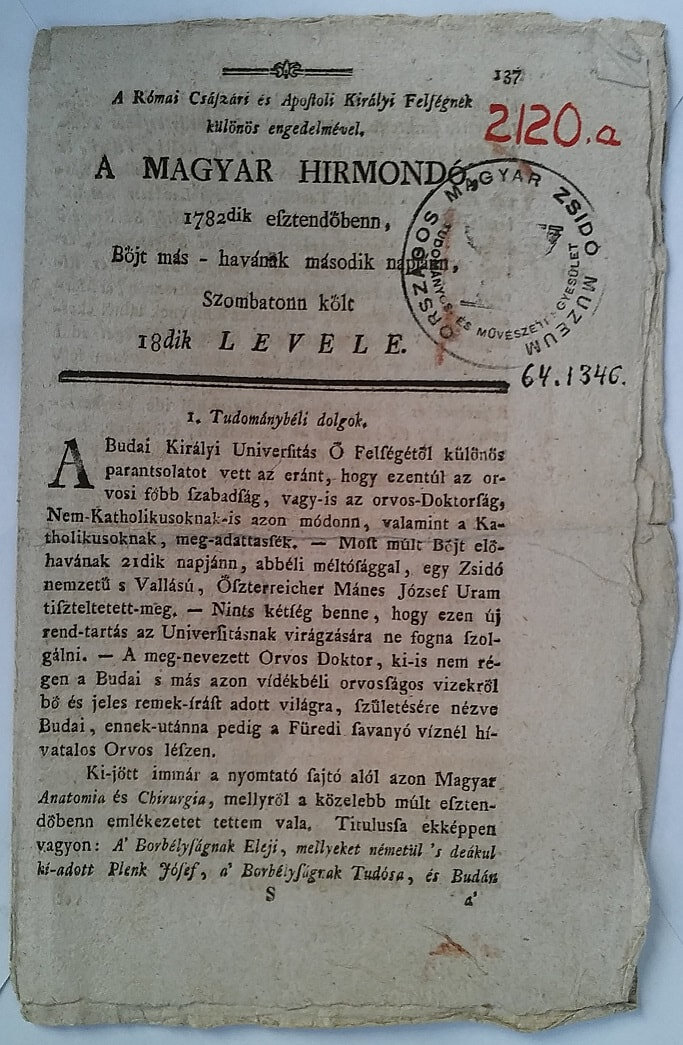 137
A Római Csáſzári és Apoſtoli Királyi Felſégnek
különös engedelmével.
2120.a
A MAGYAR HIRMONDÓ,
1782dik eſztendőbenn,
Bőjt más - havának második napjánn,
Szombatonn költ
18dik LEVELE.
ORSZÁGOS MAGYAR ZSIDÓ MUZEUM
TUDOMÁNYOS ÉS MŰVÉSZETI EGYESÜLET
64.1346.
1. Tudománybéli dolgok.
A Budai Királyi Univerſitás Ő Felſégétől különös
parantsolatot vett az eránt, hogy ezentúl az or-
vosi főbb ſzabadſág, vagy-is az orvos-Doktorſág,
Nem-Katholikusoknak-is azon módonn, valamint a Ka-
tholikusoknak, meg-adattasſék. — Moſt múlt Bőjt elő-
havának 21dik napjánn, abbéli méltóſággal, egy Zsidó
nemzetű s Vallású, Öſzterreicher Mánes József Uram
tiſzteltetett-meg. — Nints kétſég benne, hogy ezen új
rend-tartás az Univerſitásnak virágzására ne fogna ſzol-
gálni. — A meg-nevezett Orvos Doktor, ki-is nem ré-
gen a Budai s más azon vídékbéli orvosſágos vizekről
bő és jeles remek-íráſt adott világra, ſzületésére nézve
Budai, ennek-utánna pedig a Füredi ſavanyó víznél hí-
vatalos Orvos léſzen.
Ki-jött immár a nyomtató ſajtó alól azon Magyar
Anatomia és Chirurgia, mellyről a közelebb múlt eſzten-
dőbenn emlékezetet tettem vala. Titulusſa ekképpen
vagyon: A' Borbélyſágnak Eleji, mellyeket németül 's deákul
ki-adott Plenk Jóſef, a' Borbélyſágnak Tudósa, és Budán
S
a'